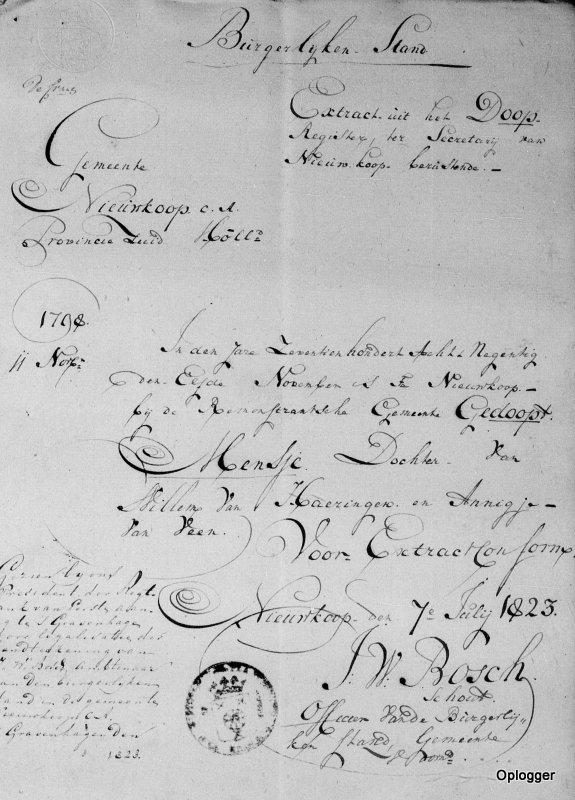 Burgerlyken Stand
Extract uit het Doop-
Register, ter Secretary van
Nieuwkoop berustende. -
Gemeente
Nieuwkoop c. a.
Provincie Zuid Holl.d
1798.
11 Nov.
In den Jare Zeventienhonderd Acht & Negentig
den Elfde November is te Nieuwkoop -
by de Remonstrantsche Gemeente Gedoopt.
Mensje Dochter van
Willem van Haeringen en Annigje
van Veen.
Voor Extract Conform
Nieuwkoop den 7e July 1823.
J. W. Bosch
Schout
Officier van de Burgerly-
ken Stand, Gemeente
Gezien by ons
President der Regt-
bank van
te s Gravenhage
voor legalisatie des
handteekening van
van den burgerlyken
Stand in de gemeente
Nieuwkoop c.a.
s Gravenhage den
1823.
Oplogger